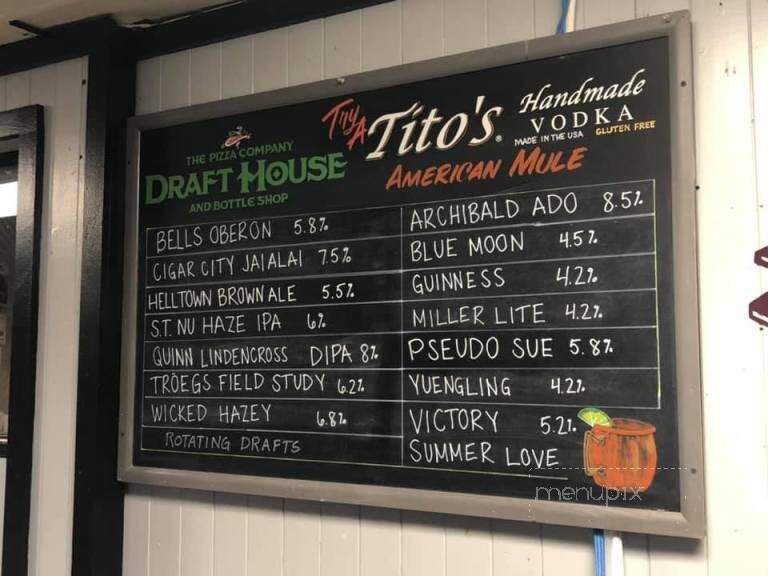 THE PIZZA COMPANY
DRAFT HOUSE
AND BOTTLE SHOP
Try A Tito's Handmade
VODKA
MADE IN THE USA GLUTEN FREE
AMERICAN MULE
BELLS OBERON 5.8%
CIGAR CITY JAI ALAI 7.5%
HELLTOWN BROWN ALE 5.5%
S.T. NU HAZE IPA 6%
QUINN LINDENCROSS DIPA 8%
TRÖEGS FIELD STUDY 6.2%
WICKED HAZEY 6.8%
ROTATING DRAFTS
ARCHIBALD ADO 8.5%
BLUE MOON 4.5%
GUINNESS 4.2%
MILLER LITE 4.2%
PSEUDO SUE 5.8%
YUENGLING 4.2%
VICTORY 5.2%
SUMMER LOVE
menupix